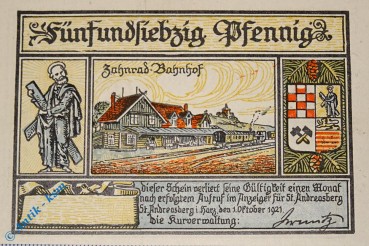 Fünfundsiebzig Pfennig
Zahnrad-Bahnhof
dieser Schein verliert seine Gültigkeit einen Monat
nach erfolgtem Aufruf im Anzeiger für St. Andreasberg
St. Andreasberg i. Harz, den 1. Oktober 1921
Die Kurverwaltung: